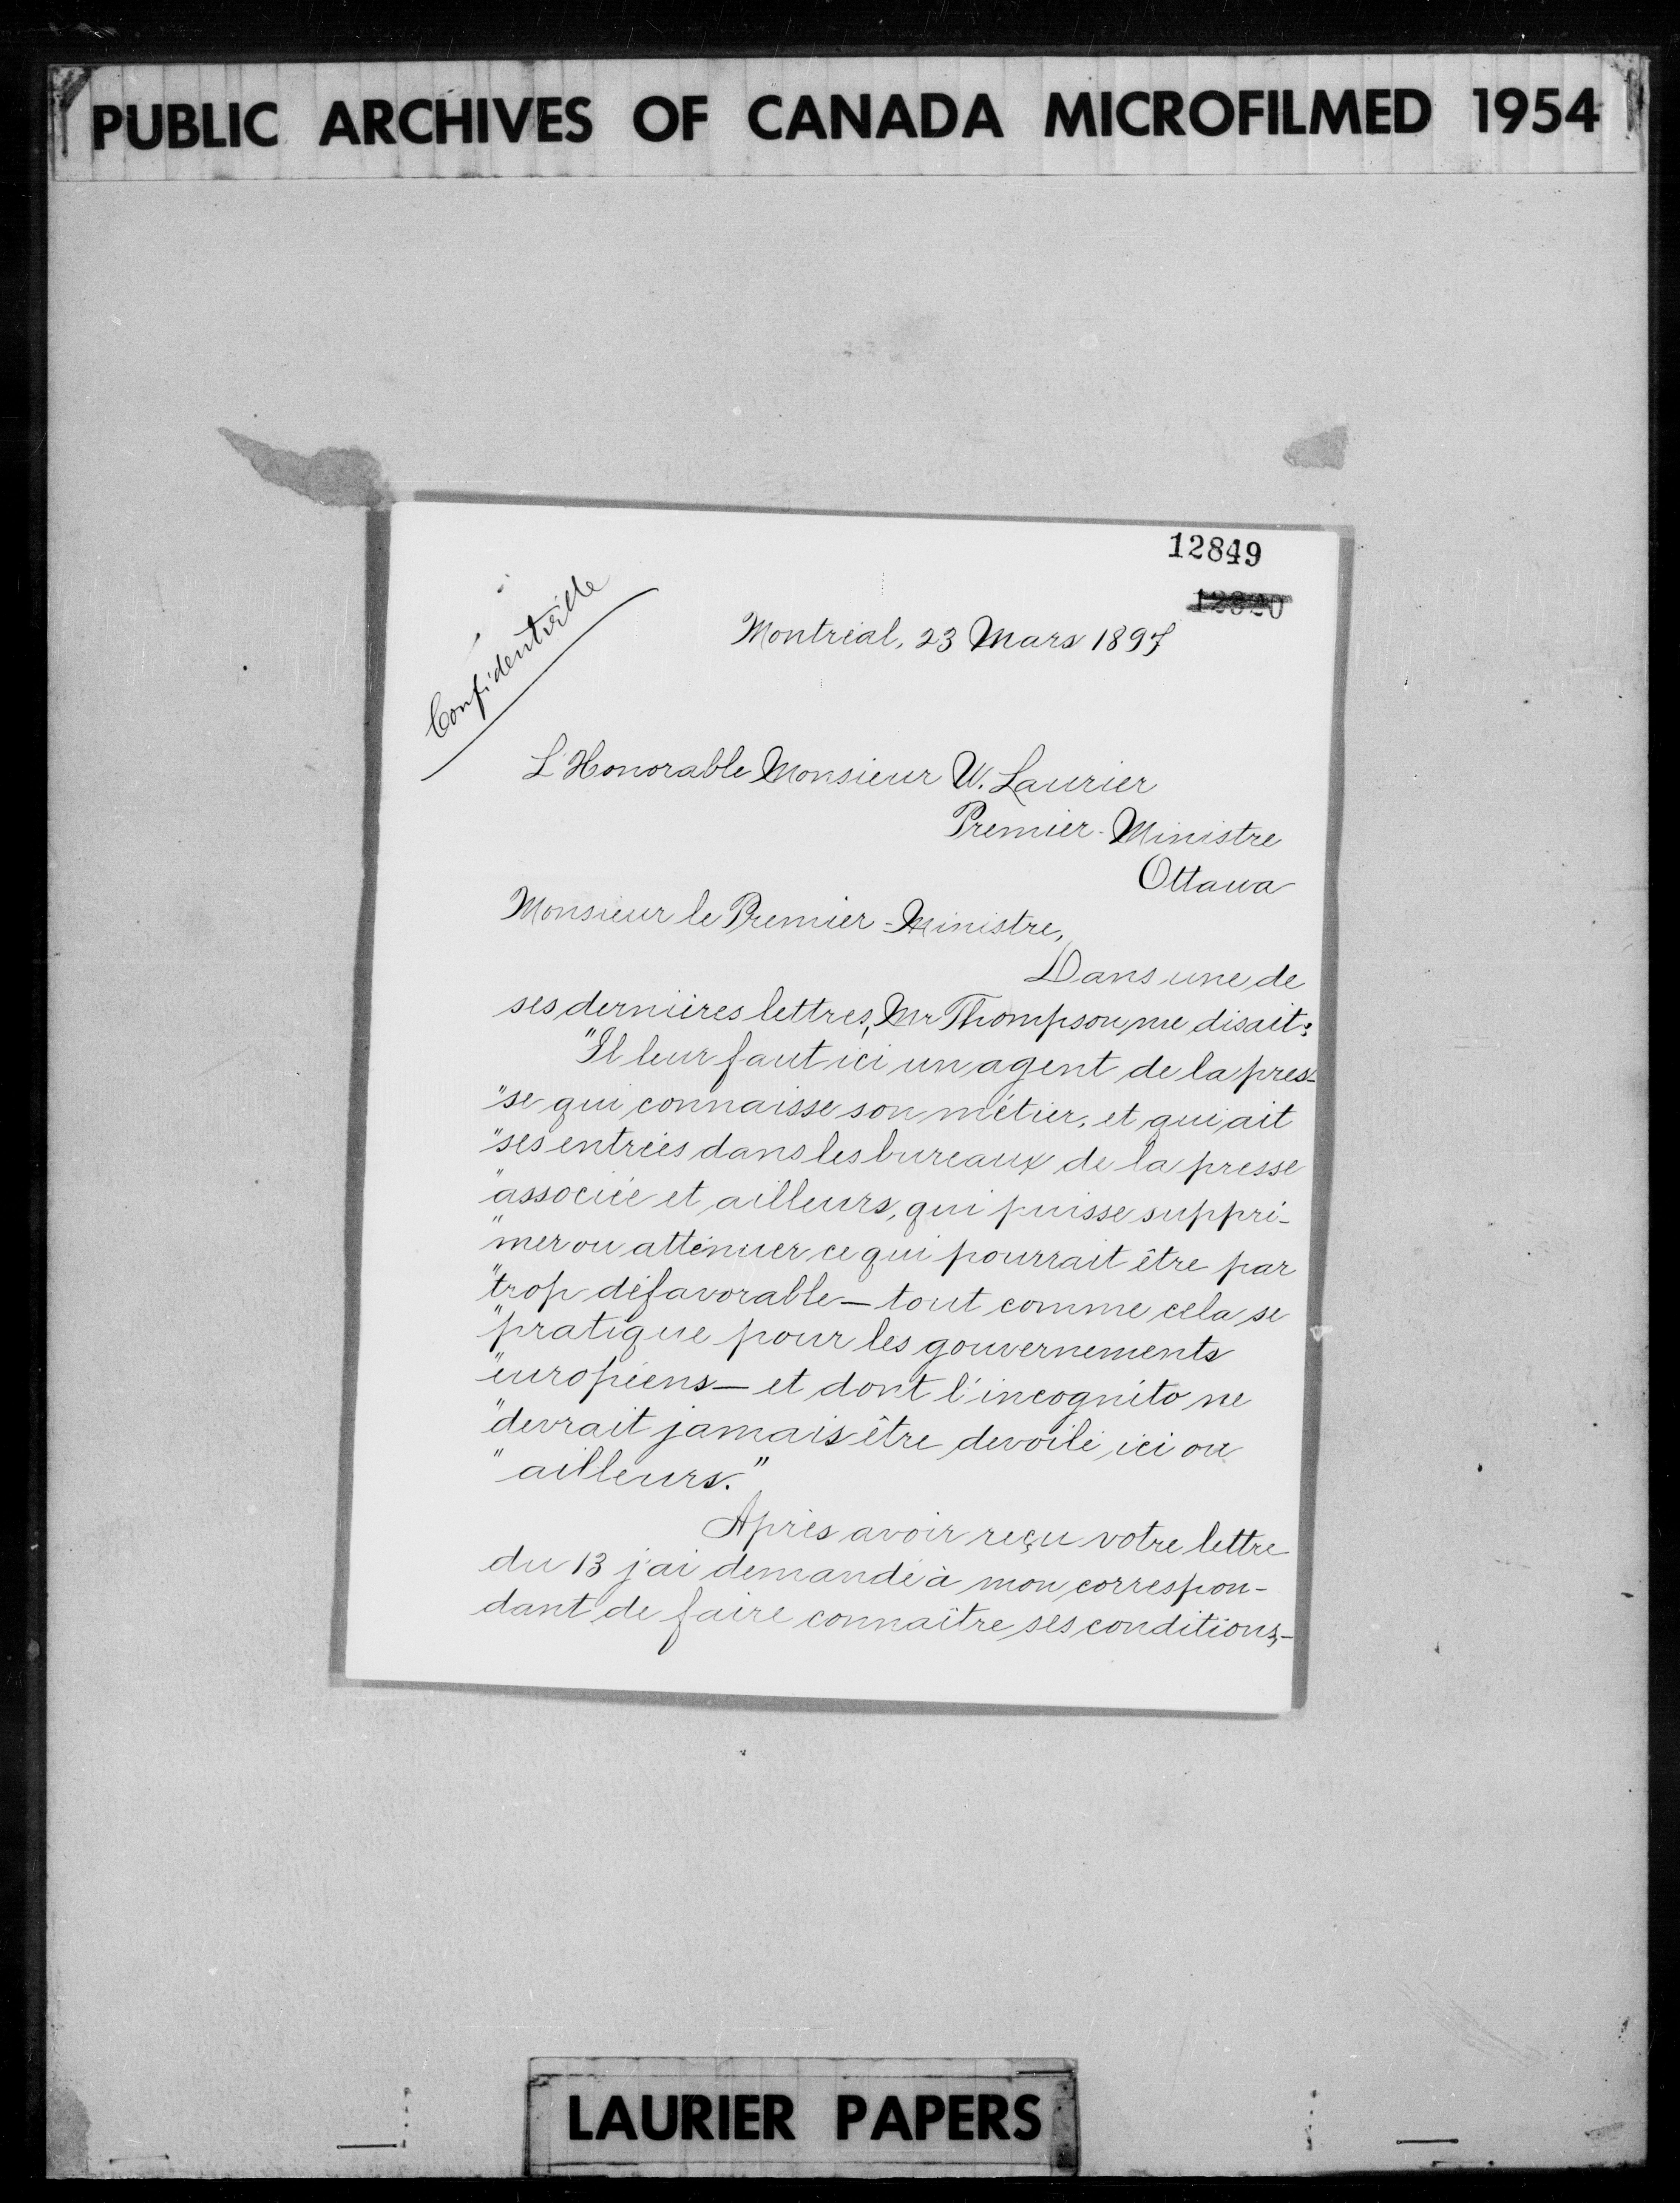 PUBLIC ARCHIVES OF CANADA MICROFILMED 1954
12849
Confidentielle
Montréal, 23 Mars 1897
L'Honorable Monsieur W. Laurier
Premier-Ministre
Ottawa
Monsieur le Premier-Ministre,
Dans une de
ses dernières lettres, Mr Thompson me disait:
"Il leur faut ici un agent de la pres-
"se qui connaisse son métier, et qui ait
"ses entrées dans les bureaux de la presse
"associée et ailleurs, qui puisse suppri-
"mer ou atténuer ce qui pourrait être par
"trop défavorable — tout comme cela se
"pratique pour les gouvernements
"européens — et dont l'incognito ne
"devrait jamais être devoilé ici ou
"ailleurs."
Après avoir reçu votre lettre
du 13 j'ai demandé à mon correspon-
dant de faire connaître ses conditions,-
LAURIER PAPERS